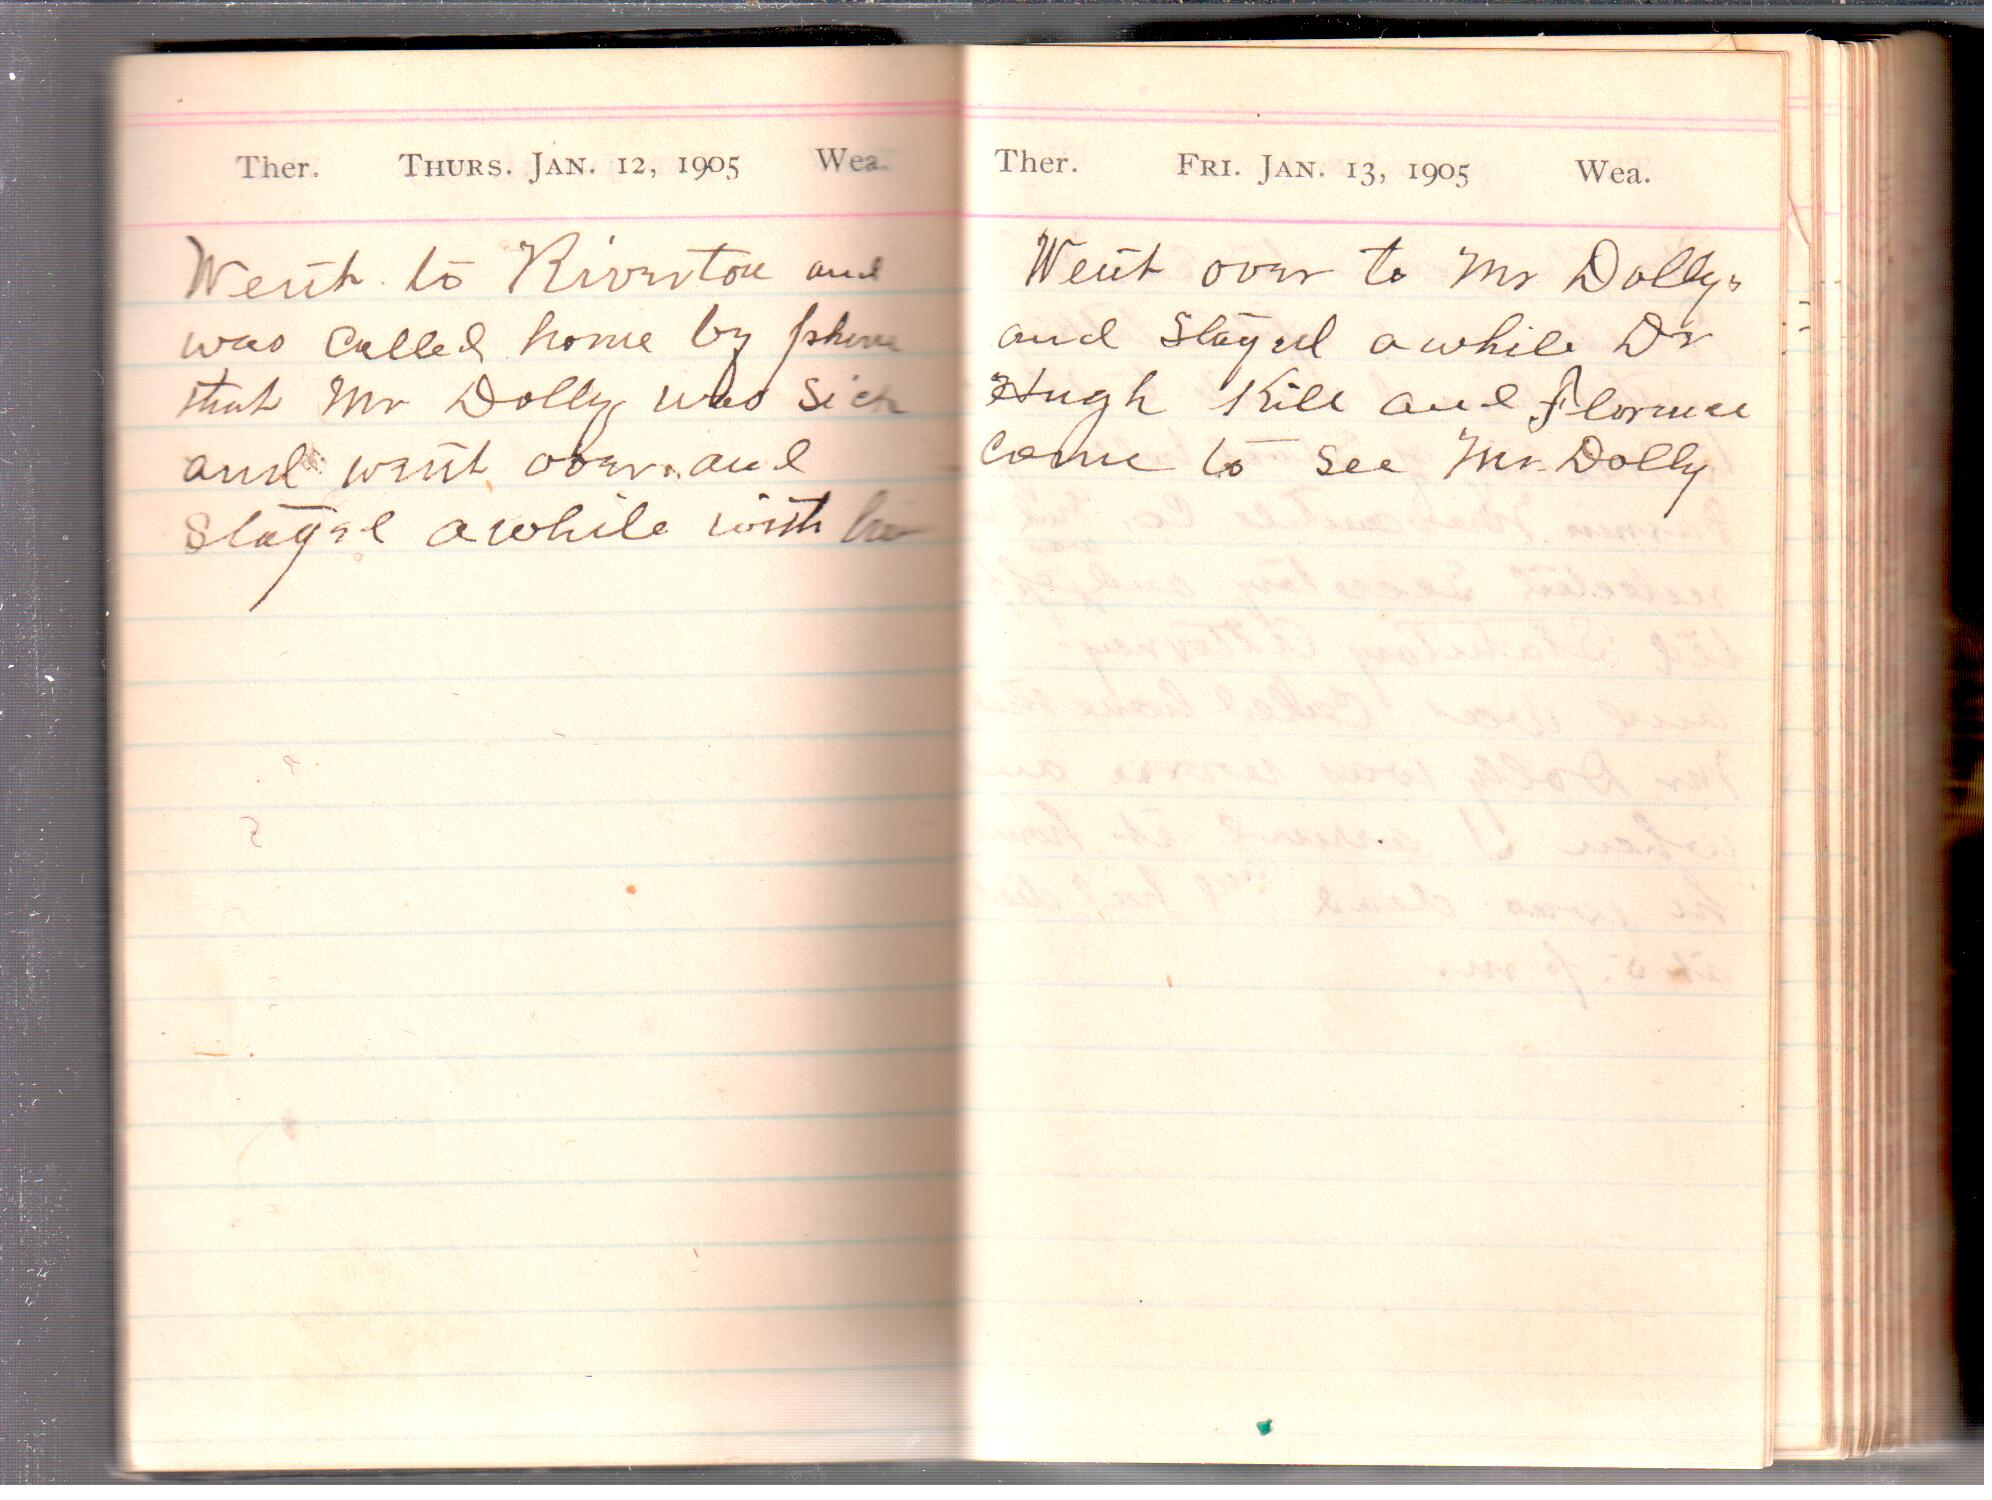 Ther. THURS. JAN. 12, 1905 Wea.
Went to Riverton and
was called home by phone
that Mr Dolly was sick
and went over and
stayed awhile with
Ther. FRI. JAN. 13, 1905 Wea.
Went over to Mr Dollys
and stayed awhile Dr
Hugh Kile and Florence
come to see Mr. Dolly